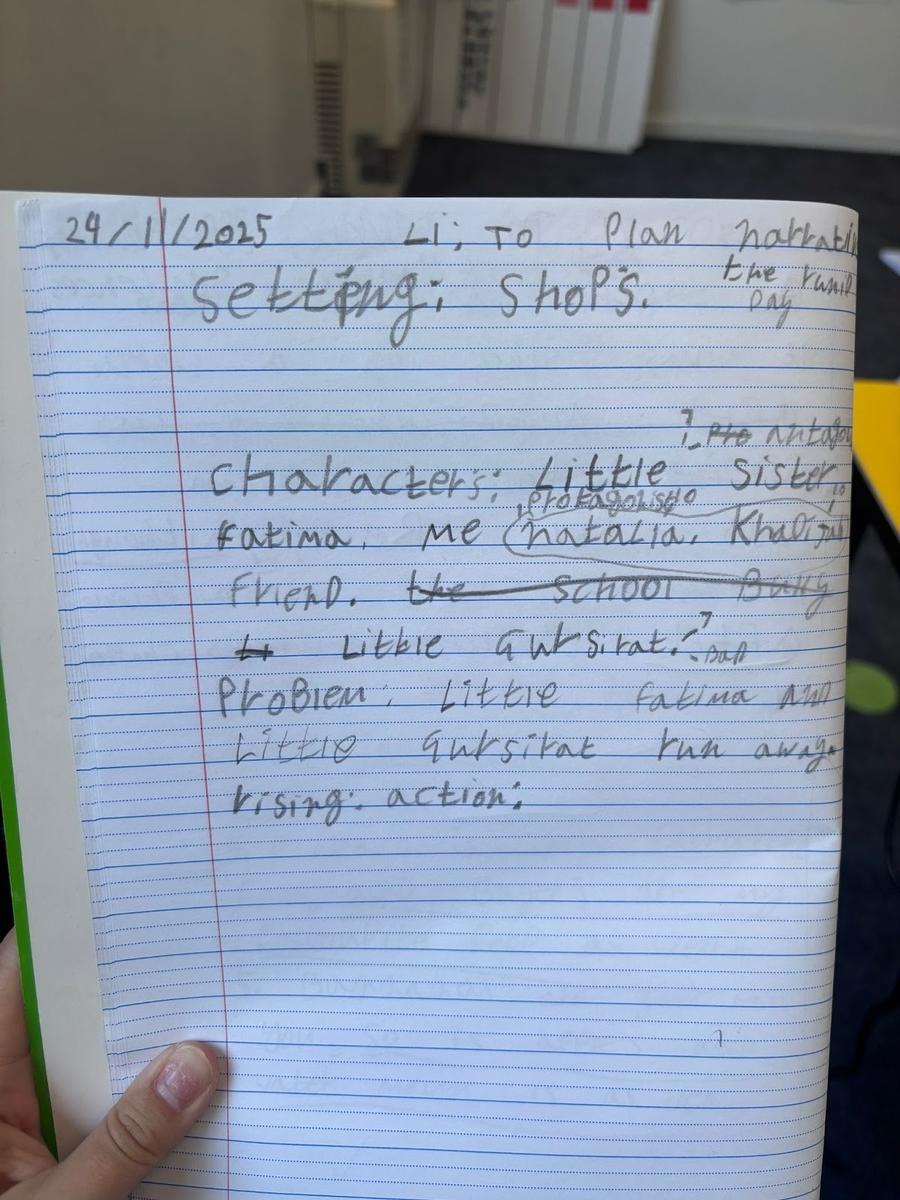 24/11/2025 Li: To Plan narrati
the runi
Day
Setting: Shops.
Pro antagon
Characters: Little Sister,
protagonist
Fatima. Me natalia. Khadijah
Friend. the School Bully
Little Gursirat.
Problem: Little Fatima and
Little Gursirat run away.
rising: action: